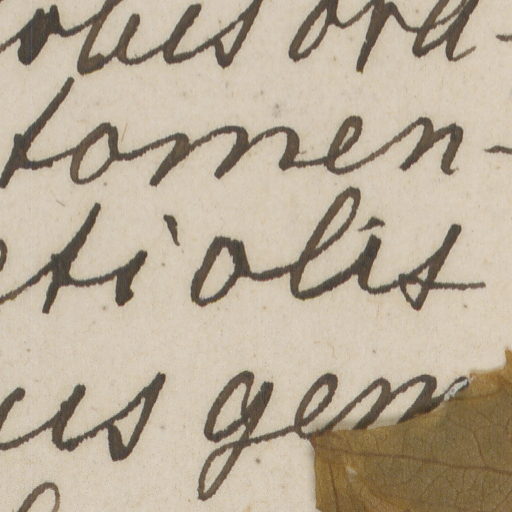 obus ora-
tomen-
etiolis
us gem